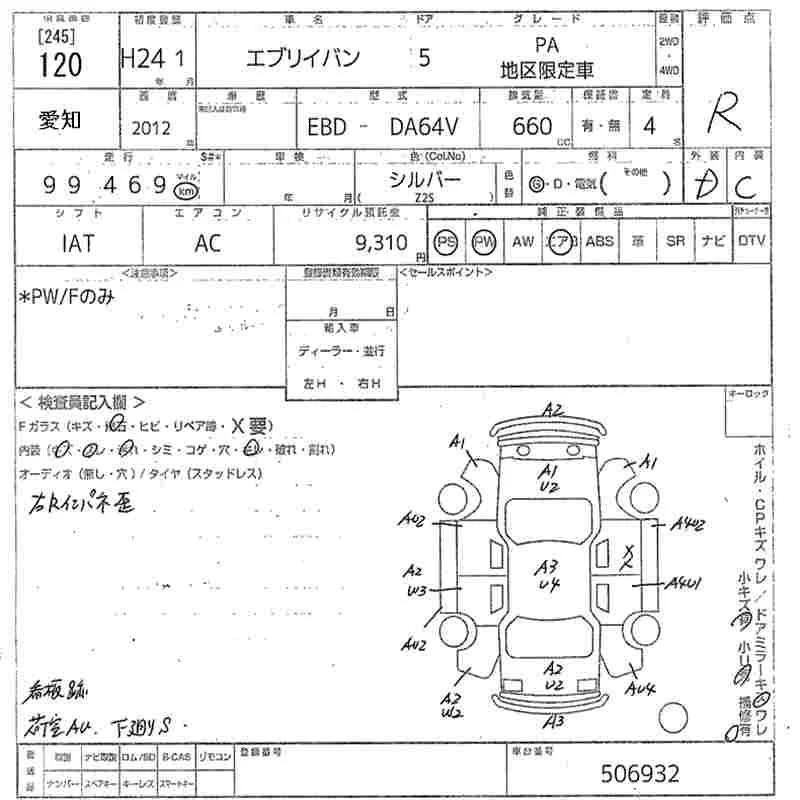 [245]
120
初度登録
H24 1
年 月
車名
エブリイバン
ドア
5
グレード
PA
地区限定車
2WD
・
4WD
評価点
愛知
2012
年
車歴
型式
EBD - DA64V
排気量
660
CC
保証書
有・無
定員
4
名
R
走行
99 469
マイル
km
$#*
車検
年 月
色(Col.No)
シルバー
( Z2S )
色替
燃料
G・D・電気( その他 )
外装
D
内装
C
シフト
IAT
エアコン
AC
リサイクル預託金
9,310
円
純正装備品
PS PW AW エアB ABS 革 SR ナビ DTV
<注意事項>
*PW/Fのみ
月 日
輸入車
ディーラー・並行
左H ・ 右H
<セールスポイント>
キーロック
< 検査員記入欄 >
Fガラス(キズ・飛石・ヒビ・リペア跡・X要)
シミ・コゲ・穴・破れ・割れ)
オーディオ(無し・穴)/タイヤ(スタッドレス)
右Rインパネ歪
看板跡
荷室AU. 下廻りS.
A2
A1
A1
A1
U2
AU2
A4U2
A3
U4
XX
A2
W3
A4U1
AU2
A2
U2
A3
W2
AU4
A3
ホイル・CPキズ ワレ/ドアミラーキズワレ
小キズ有 小リ有 補修有
取説 ナビ取説 ロム/SD B-CAS リモコン
ナンバー スペアキー キーレス スマートキー
登録番号
車台番号
506932